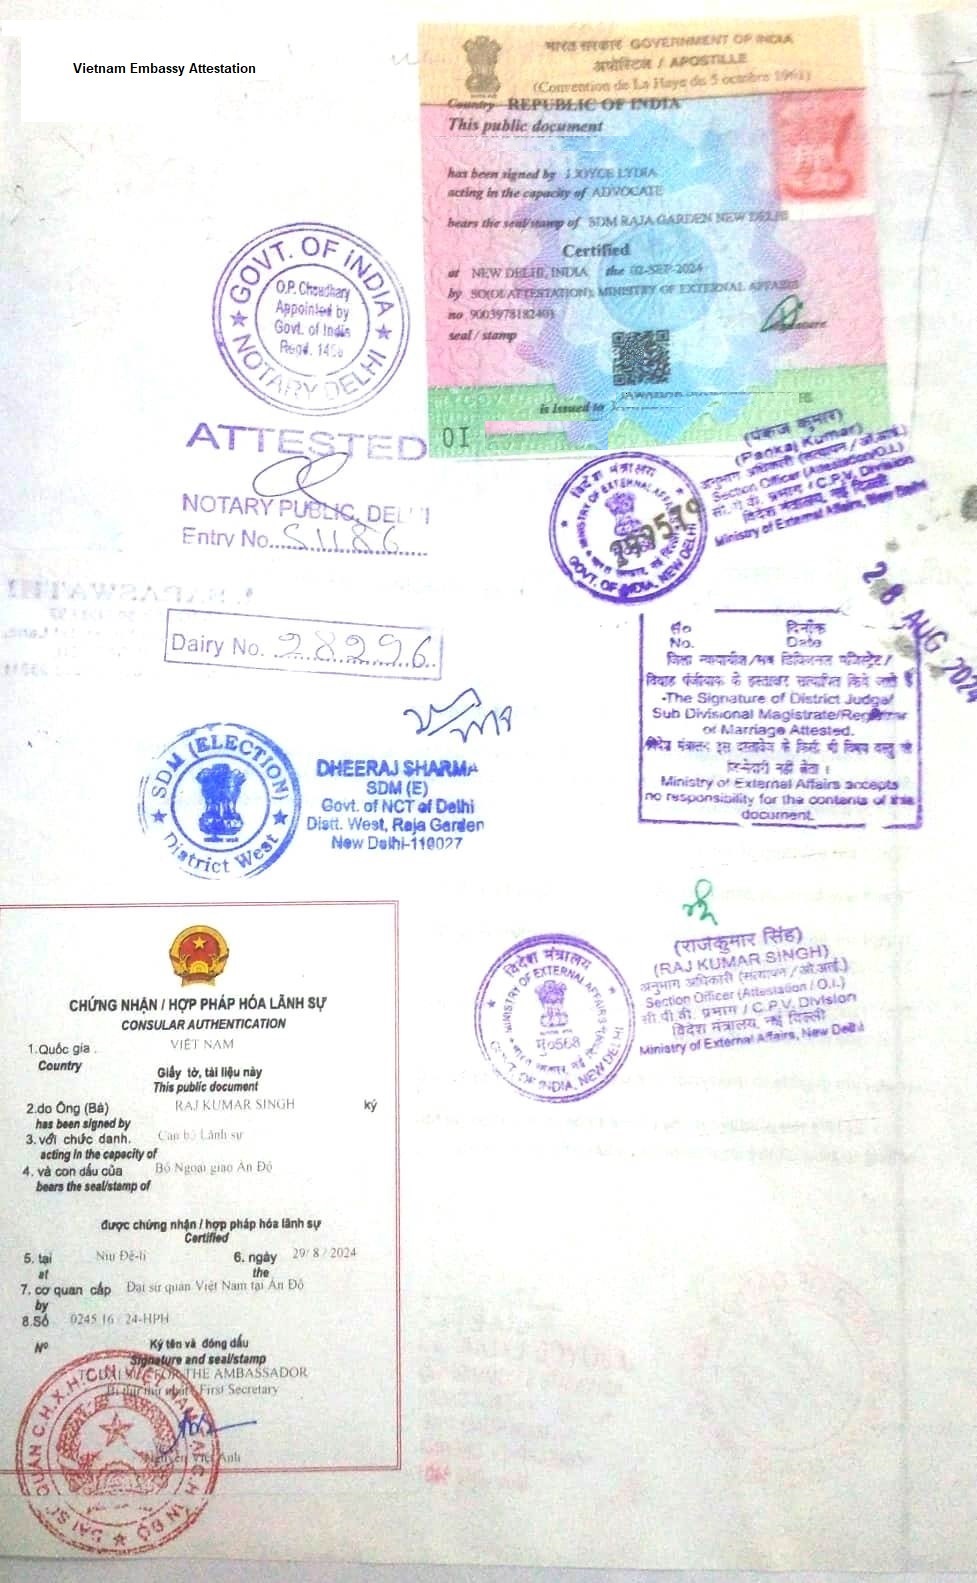 Vietnam Embassy Attestation
भारत सरकार GOVERNMENT OF INDIA
अपोस्टिल / APOSTILLE
(Convention de La Haye du 5 octobre 1961)
Country REPUBLIC OF INDIA
This public document
has been signed by J JOYCE LYDIA
acting in the capacity of ADVOCATE
bears the seal/stamp of SDM RAJA GARDEN NEW DELHI
Certified
at NEW DELHI, INDIA the 02-SEP-2024
by SO(OI ATTESTATION), MINISTRY OF EXTERNAL AFFAIRS
no
seal / stamp
is issued to
OI
GOVT. OF INDIA
O.P. Choudhary
Appointed by
Govt. of India
Regd.
NOTARY DELHI
ATTESTED
NOTARY PUBLIC, DEL
Entry No. 51186
(पंकज कुमार)
(Pankaj Kumar)
अनुभाग अधिकारी (सत्यापन / ओ.आई.)
Section Officer (Attestation/O.I.)
सी. पी. वी. प्रभाग / C.P.V. Division
विदेश मंत्रालय, नई दिल्ली
Ministry of External Affairs, New Delhi
विदेश मंत्रालय
MINISTRY OF EXTERNAL AFFAIRS
GOVT. OF INDIA, NEW DELHI
28 AUG 2024
Dairy No. 28296
सं० दिनांक
No. Date
विवाह पंजीयक के हस्ताक्षर सत्यापित किये जाते हैं
-The Signature of District Judge/
Sub Divisional Magistrate/Registrar
of Marriage Attested.
Ministry of External Affairs accepts
no responsibility for the contents of this
document.
SDM (ELECTION)
District West
DHEERAJ SHARMA
SDM (E)
Govt. of NCT of Delhi
Distt. West, Raja Garden
New Delhi-110027
विदेश मंत्रालय
MINISTRY OF EXTERNAL AFFAIRS
GOVT. OF INDIA, NEW DELHI
(राजकुमार सिंह)
(RAJ KUMAR SINGH)
अनुभाग अधिकारी (सत्यापन / ओ.आई.)
Section Officer (Attestation / O.I.)
सी.पी.वी. प्रभाग / C.P.V. Division
विदेश मंत्रालय, नई दिल्ली
Ministry of External Affairs, New Delhi
CHỨNG NHẬN / HỢP PHÁP HÓA LÃNH SỰ
CONSULAR AUTHENTICATION
1.Quốc gia . VIỆT NAM
Country
Giấy tờ, tài liệu này
This public document
2.do Ông (Bà) RAJ KUMAR SINGH ký
has been signed by
3. với chức danh. Cán bộ Lãnh sự
acting in the capacity of
4. và con dấu của Bộ Ngoại giao Ấn Độ
bears the seal/stamp of
được chứng nhận / hợp pháp hóa lãnh sự
Certified
5. tại Niu Đê-li 6. ngày 29/ 8 / 2024
at the
7. cơ quan cấp Đại sứ quán Việt Nam tại Ấn Độ
by
8.Số 0245 16 / 24-HPH
Nº Ký tên và đóng dấu
Signature and seal/stamp
FOR THE AMBASSADOR
First Secretary
Nguyễn Việt Anh